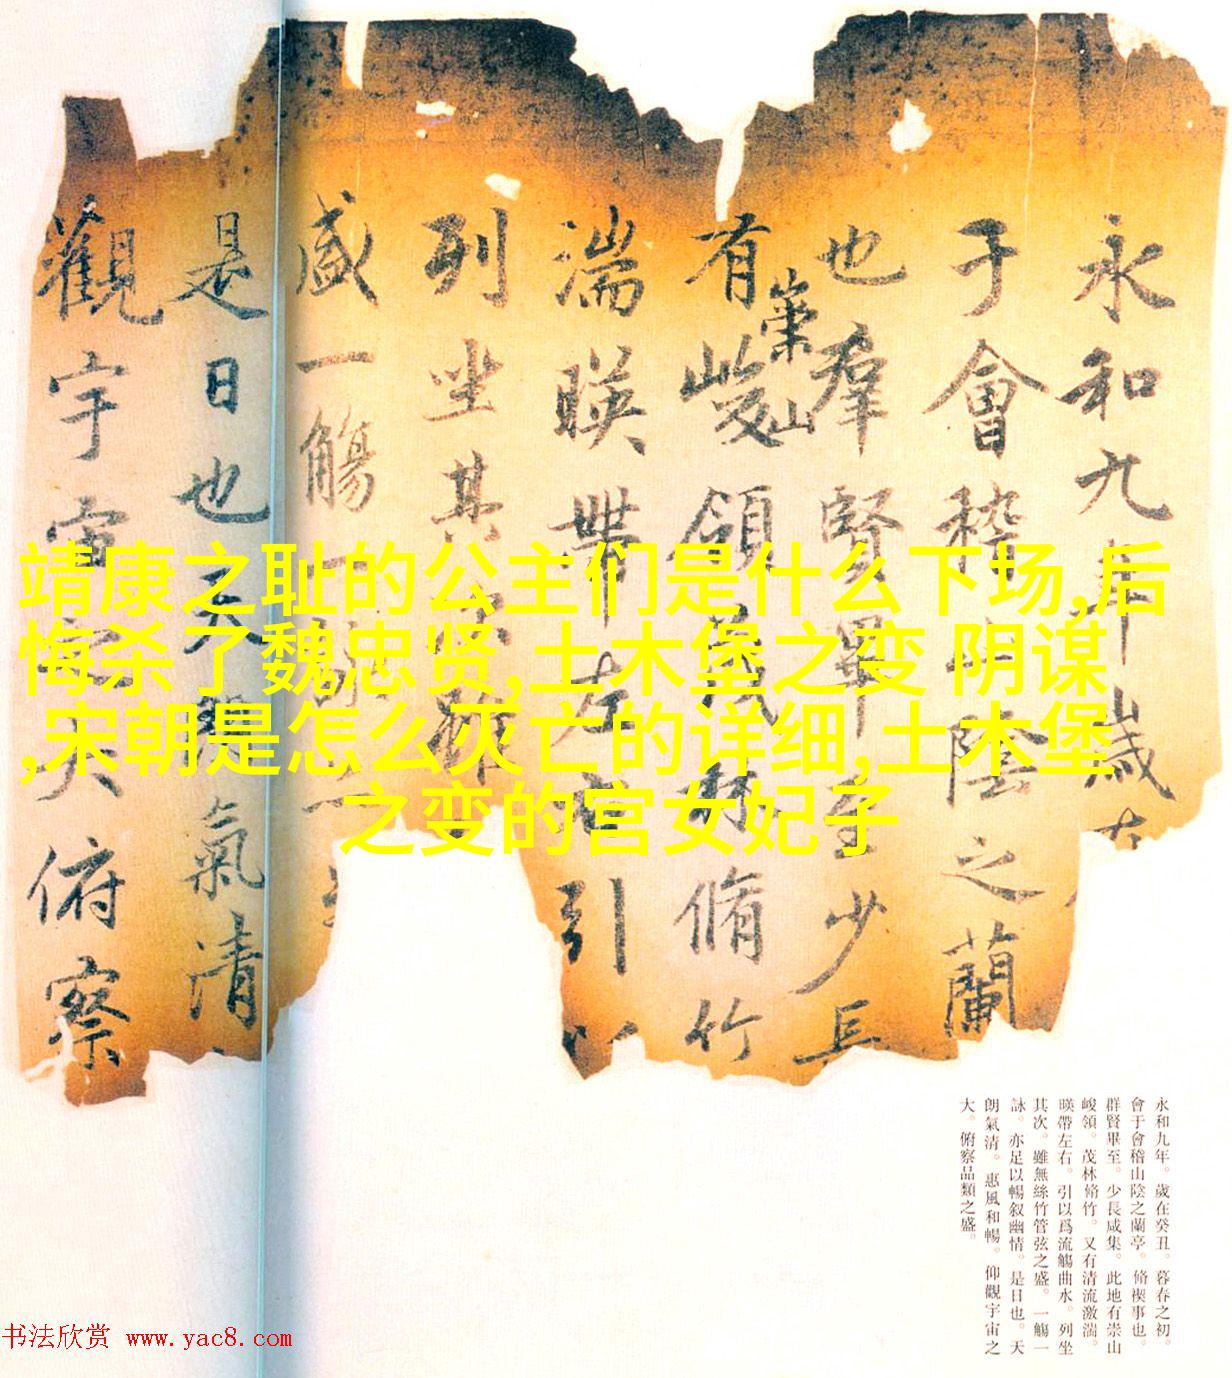 永和九年歲在
于會稽山陰之蘭
也羣賢畢至少長
有崇山峻領茂林脩竹
湍暎帶左右引以
列坐其次雖
盛一觴一詠
是日也天朗氣清
觀宇宙之大俯察
靖康之耻的公主们是什么下场,后
悔杀了魏忠贤,土木堡之变 阴谋
,宋朝是怎么灭亡的详细,土木堡
之变的宫女妃子
永和九年。歲在癸丑。暮春之初。
會于會稽山陰之蘭亭。脩禊事也。
群賢畢至。少長咸集。此地有崇山
峻領。茂林脩竹。又有清流激湍。
暎帶左右。引以爲流觴曲水。列坐
其次。雖無絲竹管弦之盛。一觴一
詠。亦足以暢叙幽情。是日也。天
朗氣清。惠風和暢。仰觀宇宙之
大。俯察品類之盛。
书法欣赏 www.yac8.com